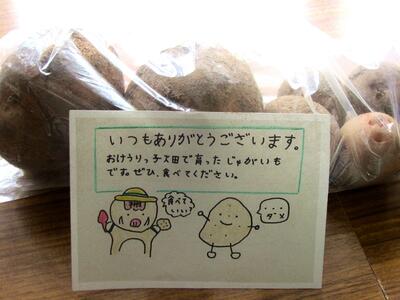 いつもありがとうございます。
おけうりっ子ズ田で育ったじゃがいも
です。ぜひ、食べてください。
食べて
いい?
ダメ